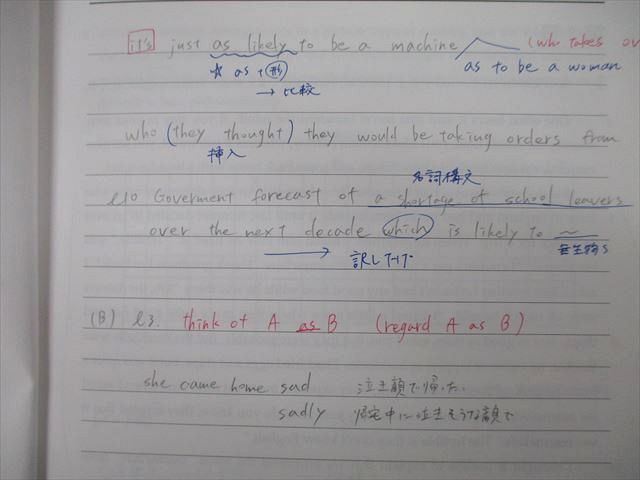 it's just as likely to be a machine (who takes ov
☆ as + 形 as to be a woman
→ 比較
who (they thought) they would be taking orders from
挿入
名詞構文
l10 Goverment forecast of a shortage of school leavers
over the next decade which is likely to ~
→ 訳し下げ 無生物S
(B) l3. think of A as B (regard A as B)
she came home sad 泣き顔で帰った.
sadly 帰宅中に泣きそうな顔で